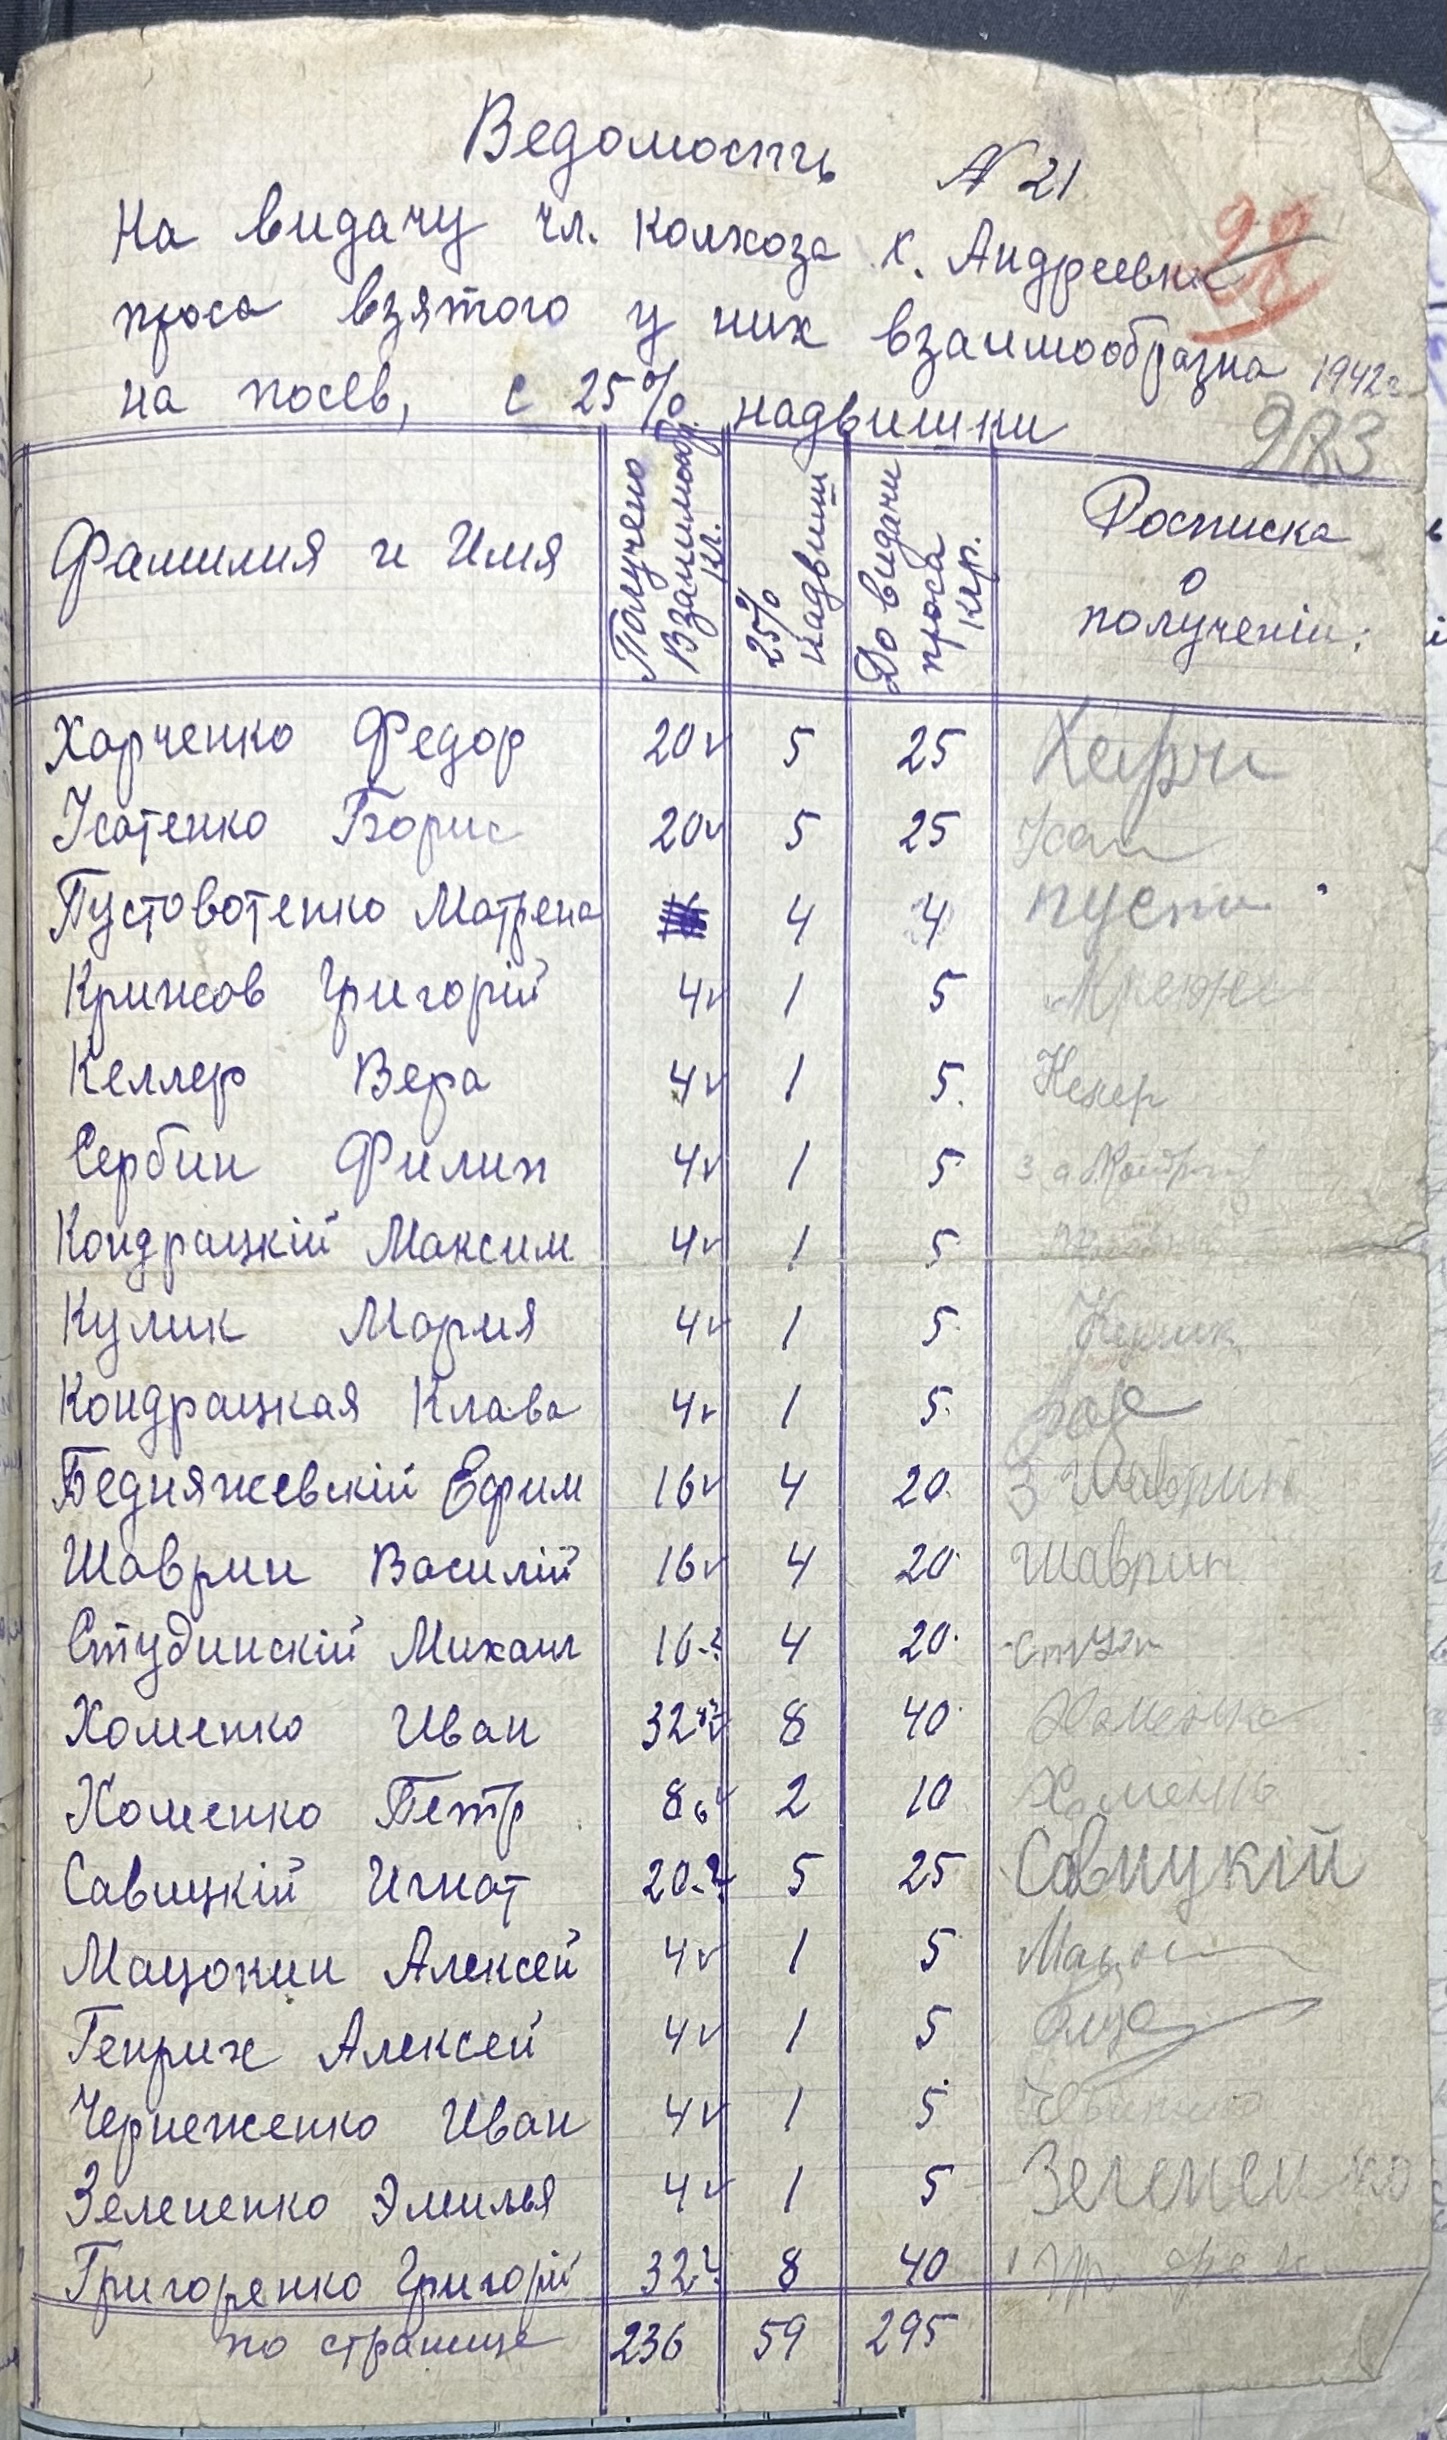 Ведомость № 21
28
На видачу чл. колхоза х. Андреевка
проса взятого у них взаимообразна 1942г
на посев, с 25% надвишки
983
Фамилия и Имя Получено Взаимообр. кг. 25% надвиш До видачи проса кгр. Росписка о полученіи:
Харченко Федор 20 5 25 Харч
Усатенко Борис 20 5 25 Усат
Пустовотенко Матрена 4 4 пуст
Крижов Григорій 4 1 5
Келлер Вера 4 1 5. Келер
Сербин Филип 4 1 5 за
Кондрацкій Максим 4 1 5
Кулик Мария 4 1 5 Кулик
Кондрацкая Клава 4 1 5
Бедняжевскій Ефим 16 4 20 З Шаврин
Шаврин Василій 16 4 20 Шаврин
Студинскій Михаил 16 4 20 Студ
Хоменко Иван 32 8 40 Хоменко
Хоменко Петр 8 2 10 Хоменко
Савицкій Игнат 20 5 25 Савицкій
Мацокин Алексей 4 1 5 Мацок
Генрих Алексей 4 1 5
Чернеженко Иван 4 1 5
Зелененко Эмилья 4 1 5 Зелененко
Григоренко Григорій 32 8 40
по странице 236 59 295